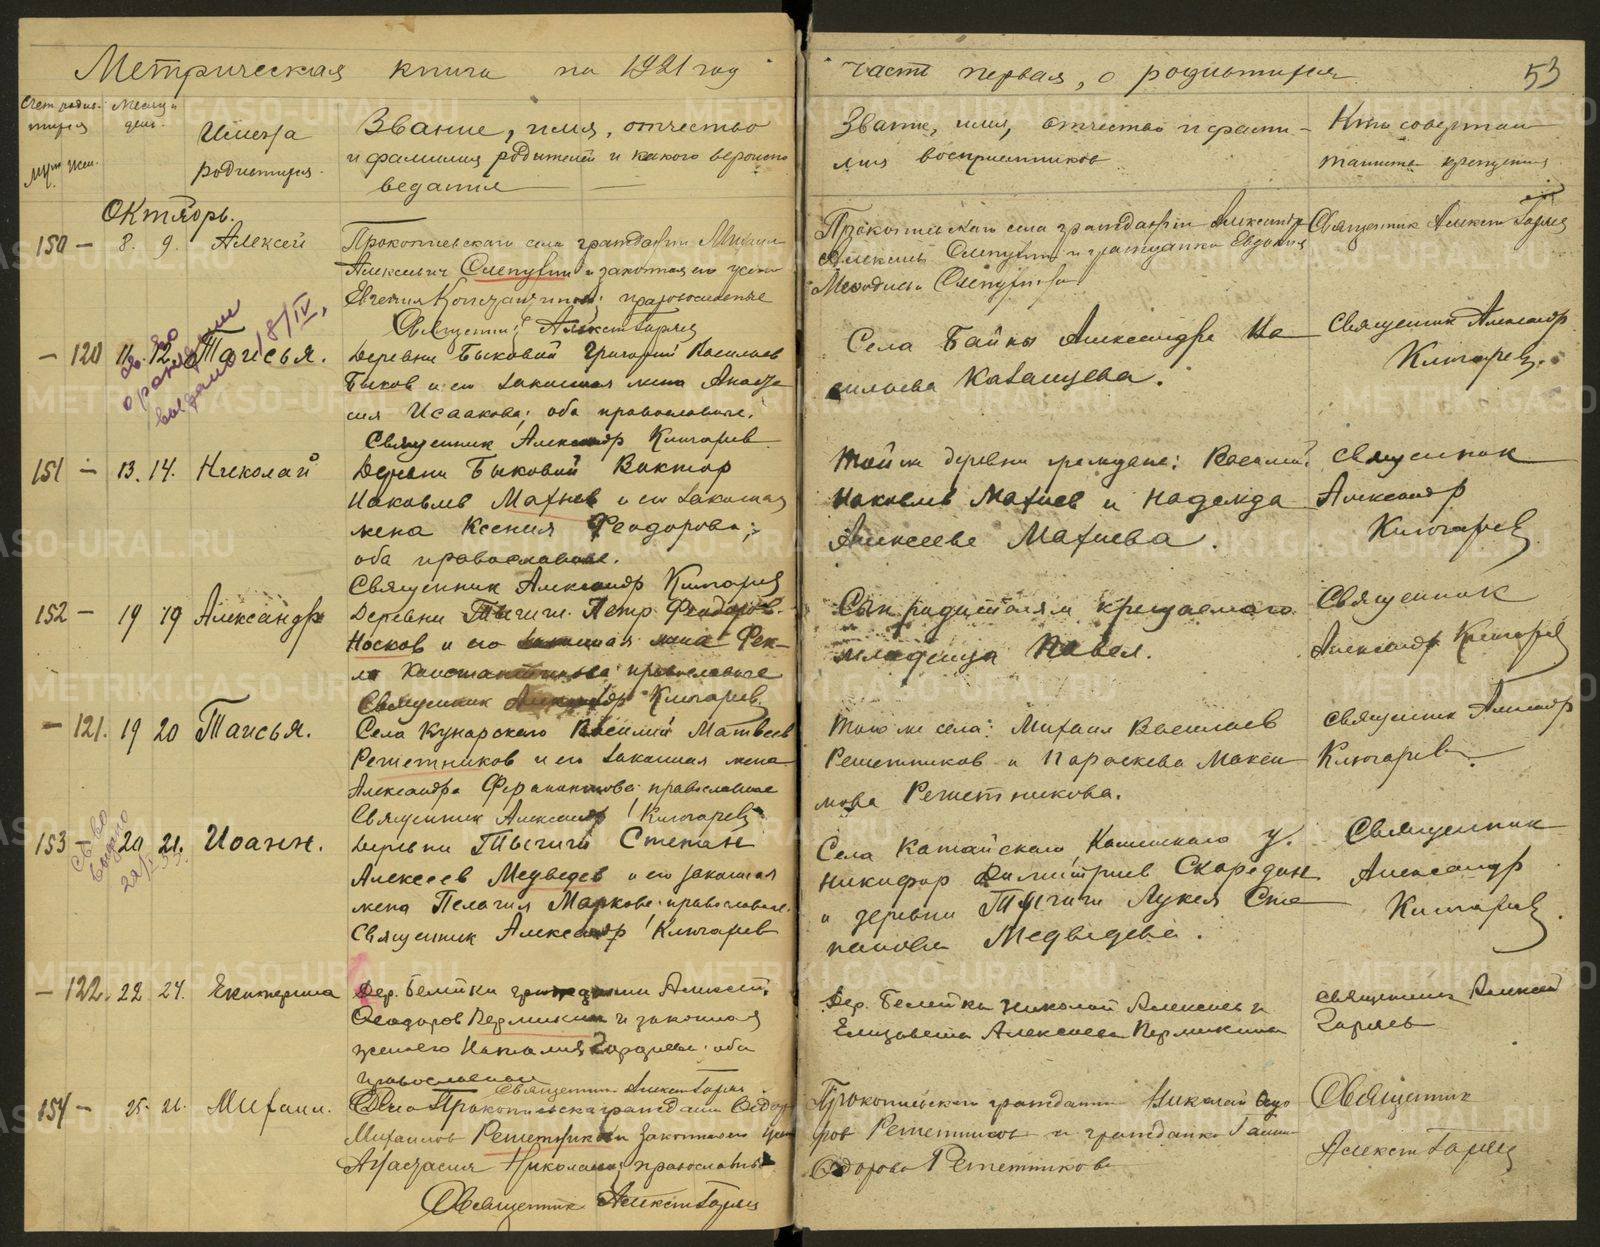 Метрическая книга на 1921 год
часть первая, о родившихся
53
Счет родив-
шихся
муж. жен.
Месяц и
день.
Имена
родившихся.
Звание, имя, отчество
и фамилия родителей и какого вероиспо
ведания
Звание, имя, отчество и фами-
лия восприемников
Кто совершал
таинство крещения
Октябрь.
150 – 8. 9. Алексей
Прокопьевского села гражданин Михаил
Алексеевич Слепухин и законная его жена
Евгения Константинова; православные
Священник Алексей
Прокопьевского села гражданин Александр
Алексеев Слепухин и гражданка Евдокия
Слепухина
Священник Алексей
– 120 11. 12. Таисья.
18/IV,
Деревни Быковой Григорий Васильев
Быков и его законная жена Анаста
сия Исаакова; оба православные.
Священник Александр Ключарев
Села Байны Александра Ва
сильева Казанцева.
Священник Александр
Ключарев.
151 – 13. 14. Николай
Деревни Быковой Виктор
Иаковлев Махнев и его законная
жена Ксения Феодорова;
оба православные.
Священник Александр Ключарев
Той же деревни граждане: Василий
Иаковлев Махнев и Надежда
Алексеева Махнева.
Священник
Александр
Ключарев
152 – 19 19 Александр
Деревни Тыгиш Петр Феодоров
Носков и его законная жена Фек-
ла Константинова; православные
Священник Александр Ключарев
Сын родителям крещаемого
младенца Павел.
Священник
Александр Ключарев
– 121. 19 20 Таисья.
Села Кунарского Василий Матвеев
Решетников и его законная жена
Александра православные
Священник Александр Ключарев
Того же села: Михаил Васильев
Решетников и Параскева Макси
мова Решетникова.
Священник Александр
Ключарев
153 – 20 21. Иоанн.
Деревни Тыгиш Степан
Алексеев Медведев и его законная
жена Пелагия Маркова; православные.
Священник Александр Ключарев
Села Катайского Камышского у.
Никифор Димитриев Скоредин
и деревни Тыгиш Лукея Сте
панова Медведева.
Священник
Александр
Ключарев.
– 122. 22 24. Екатерина
Дер. Белейки гражданин Алексей
Феодоров Пермикин и законная
жена его Наталия оба
православные
Священник Алексей
Дер. Белейки Николай Алексеев и
Елизавета Алексеева Пермикина
Священник Алексей
154 – 25. 26. Михаил.
Села Прокопьевска гражданин Феодор
Михаилов Решетников и законная его жена
Анастасия Николаева; православные
Священник Алексей
Прокопьевского гражданин Николай Федо
ров Решетников и гражданка
Федорова Решетникова
Священник
Алексей